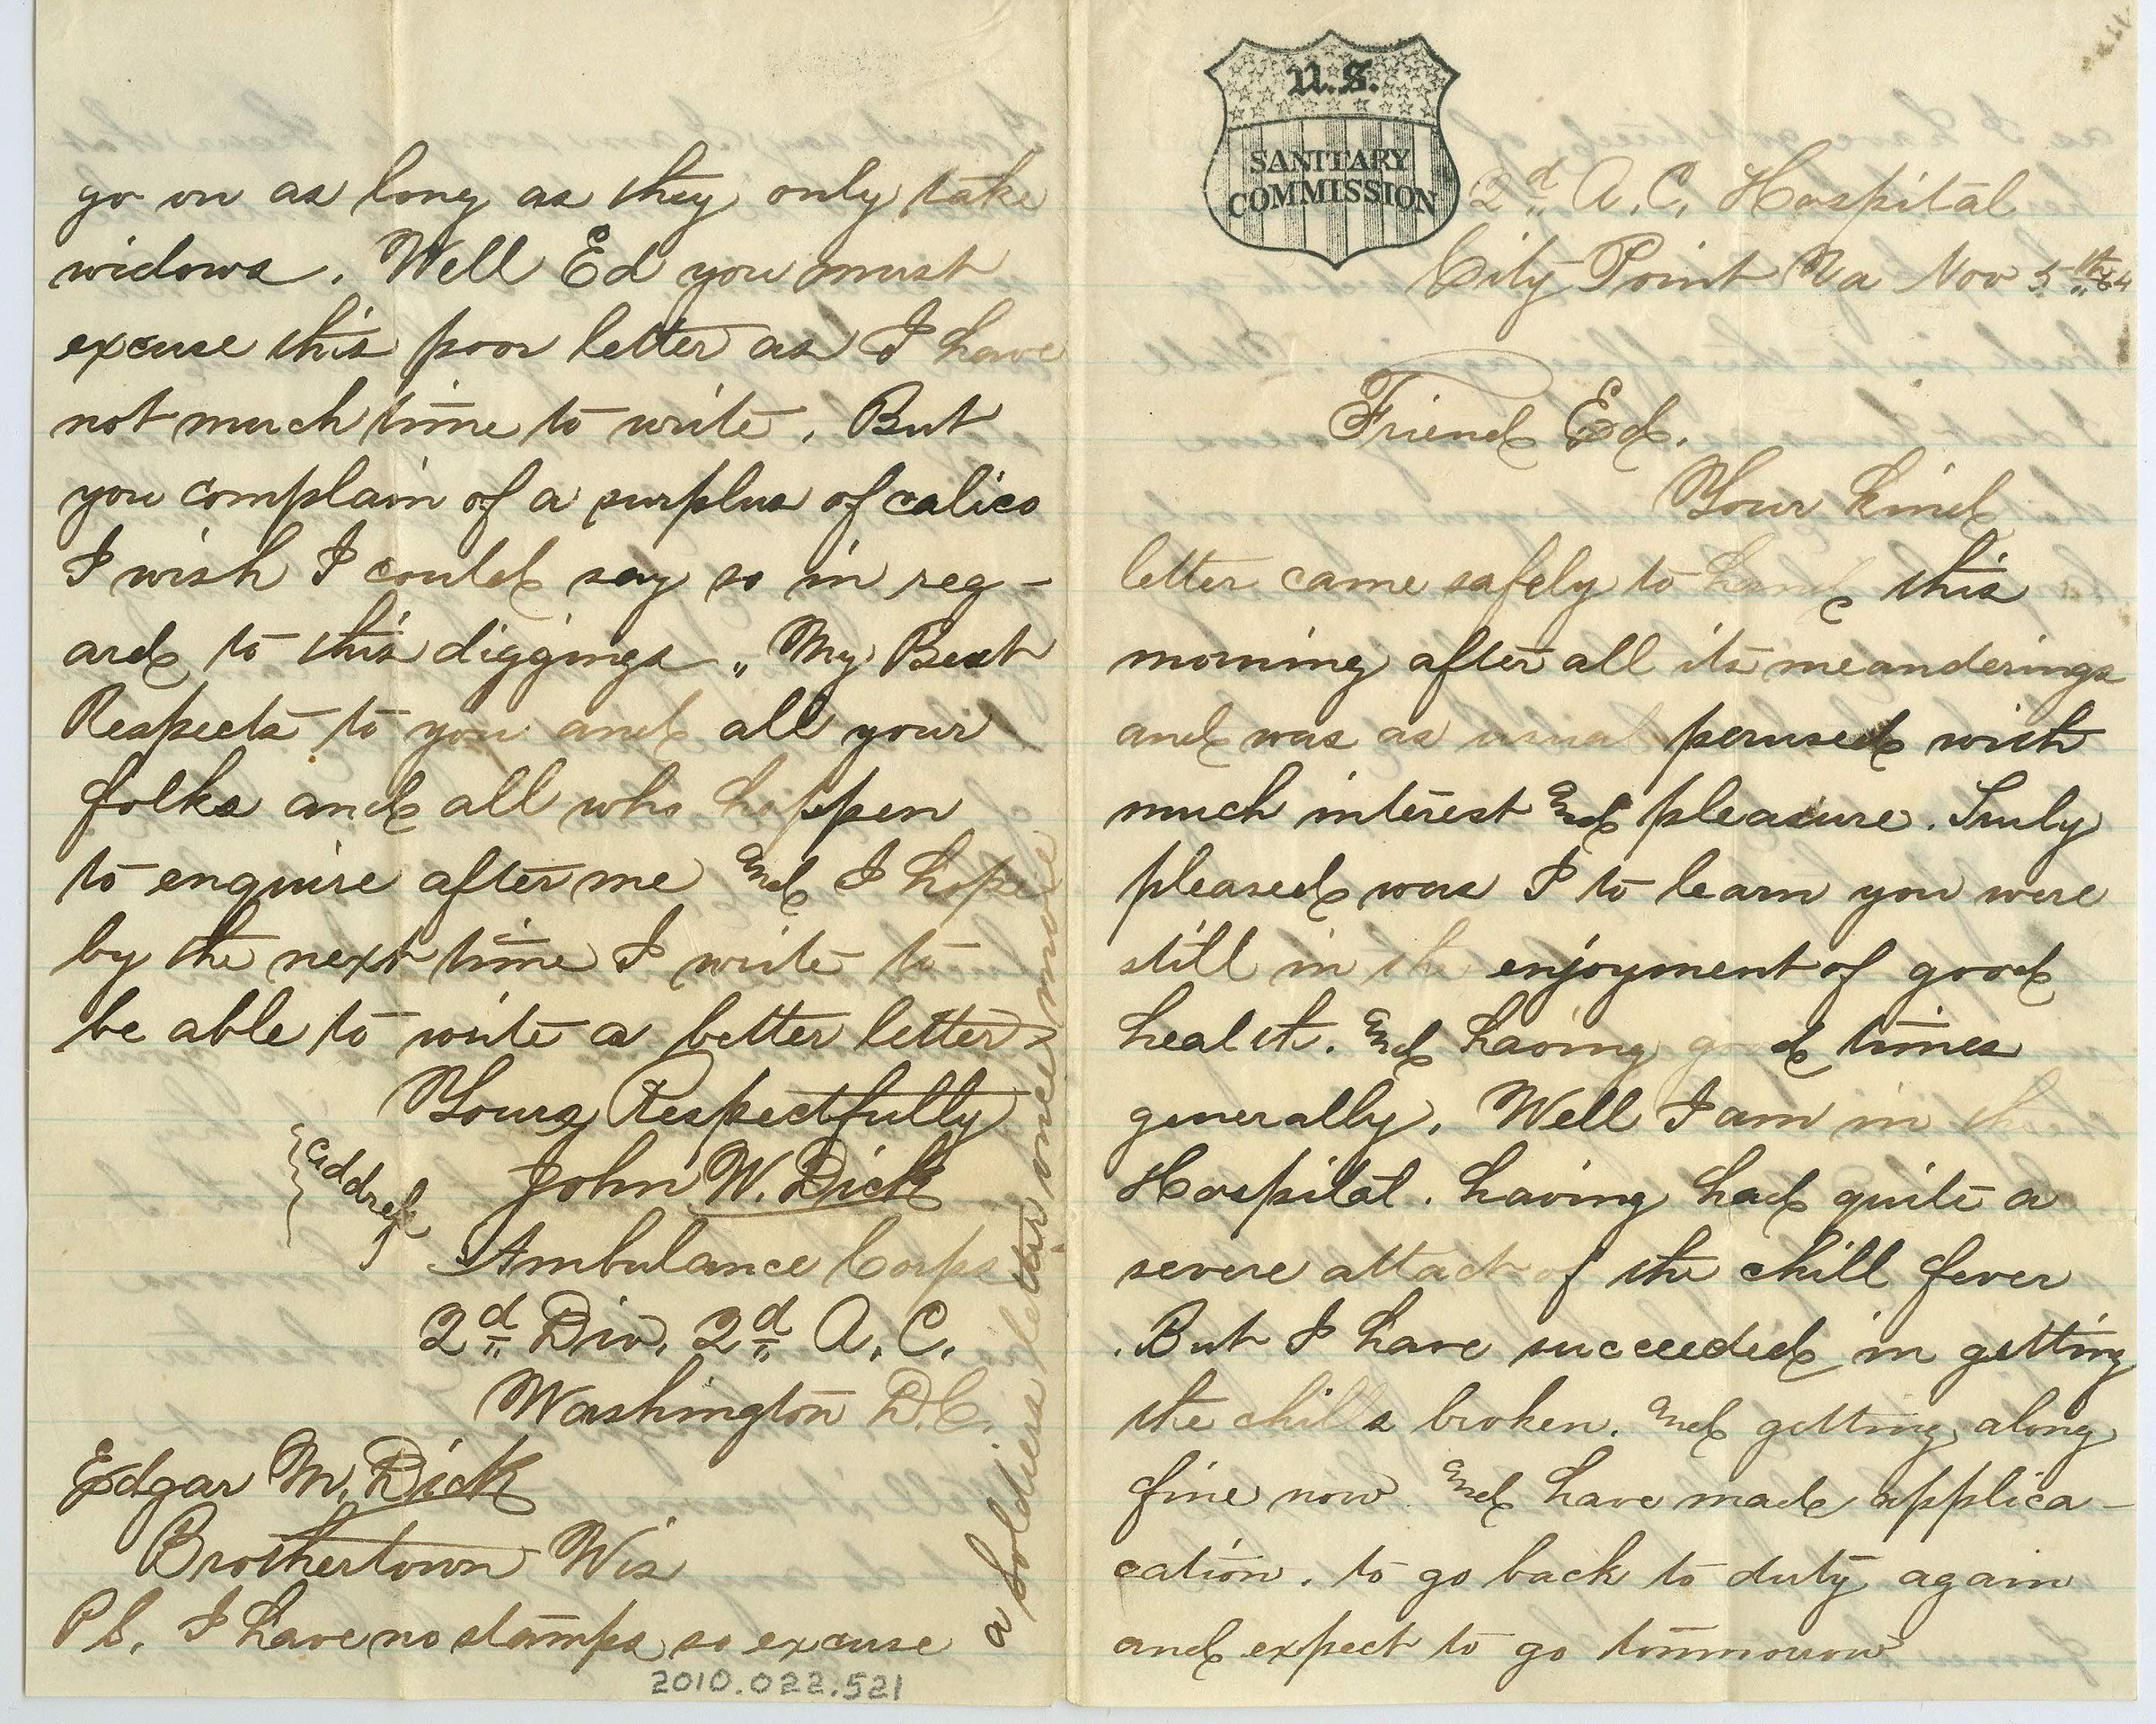 U.S.
SANITARY
COMMISSION
2d A.C. Hospital
City Point Va Nov 5th 64
Friend Ed.
Your kind
letter came safely to hand this
morning after all its meanderings
and was as usual perused with
much interest and pleasure. Truly
pleased was I to learn you were
still in the enjoyment of good
health. and having good times
generally. Well I am in the
Hospital. having had quite a
severe attact of the chill fever
. But I have succeeded in getting
the chills broken. and getting along
fine now and have made applica-
cation. to go back to duty again
and expect to go tommorrow
go on as long as they only take
widows. Well Ed you must
excuse this poor letter as I have
not much time to write. But
you complain of a surplus of calico
I wish I could say so in reg-
ard to this diggings „ My Best
Respects to you and all your
folks and all who happen
to enquire after me and I hope
by the next time I write to
be able to write a better letter
Yours Respectfully
John W. Dick
{address
Ambulance Corps
2d Div. 2d A.C.
Washington D.C.
Edgar M. Dick
Brothertown Wis
Ps. I have no stamps so excuse
a soldiers letter once more
2010.022.521